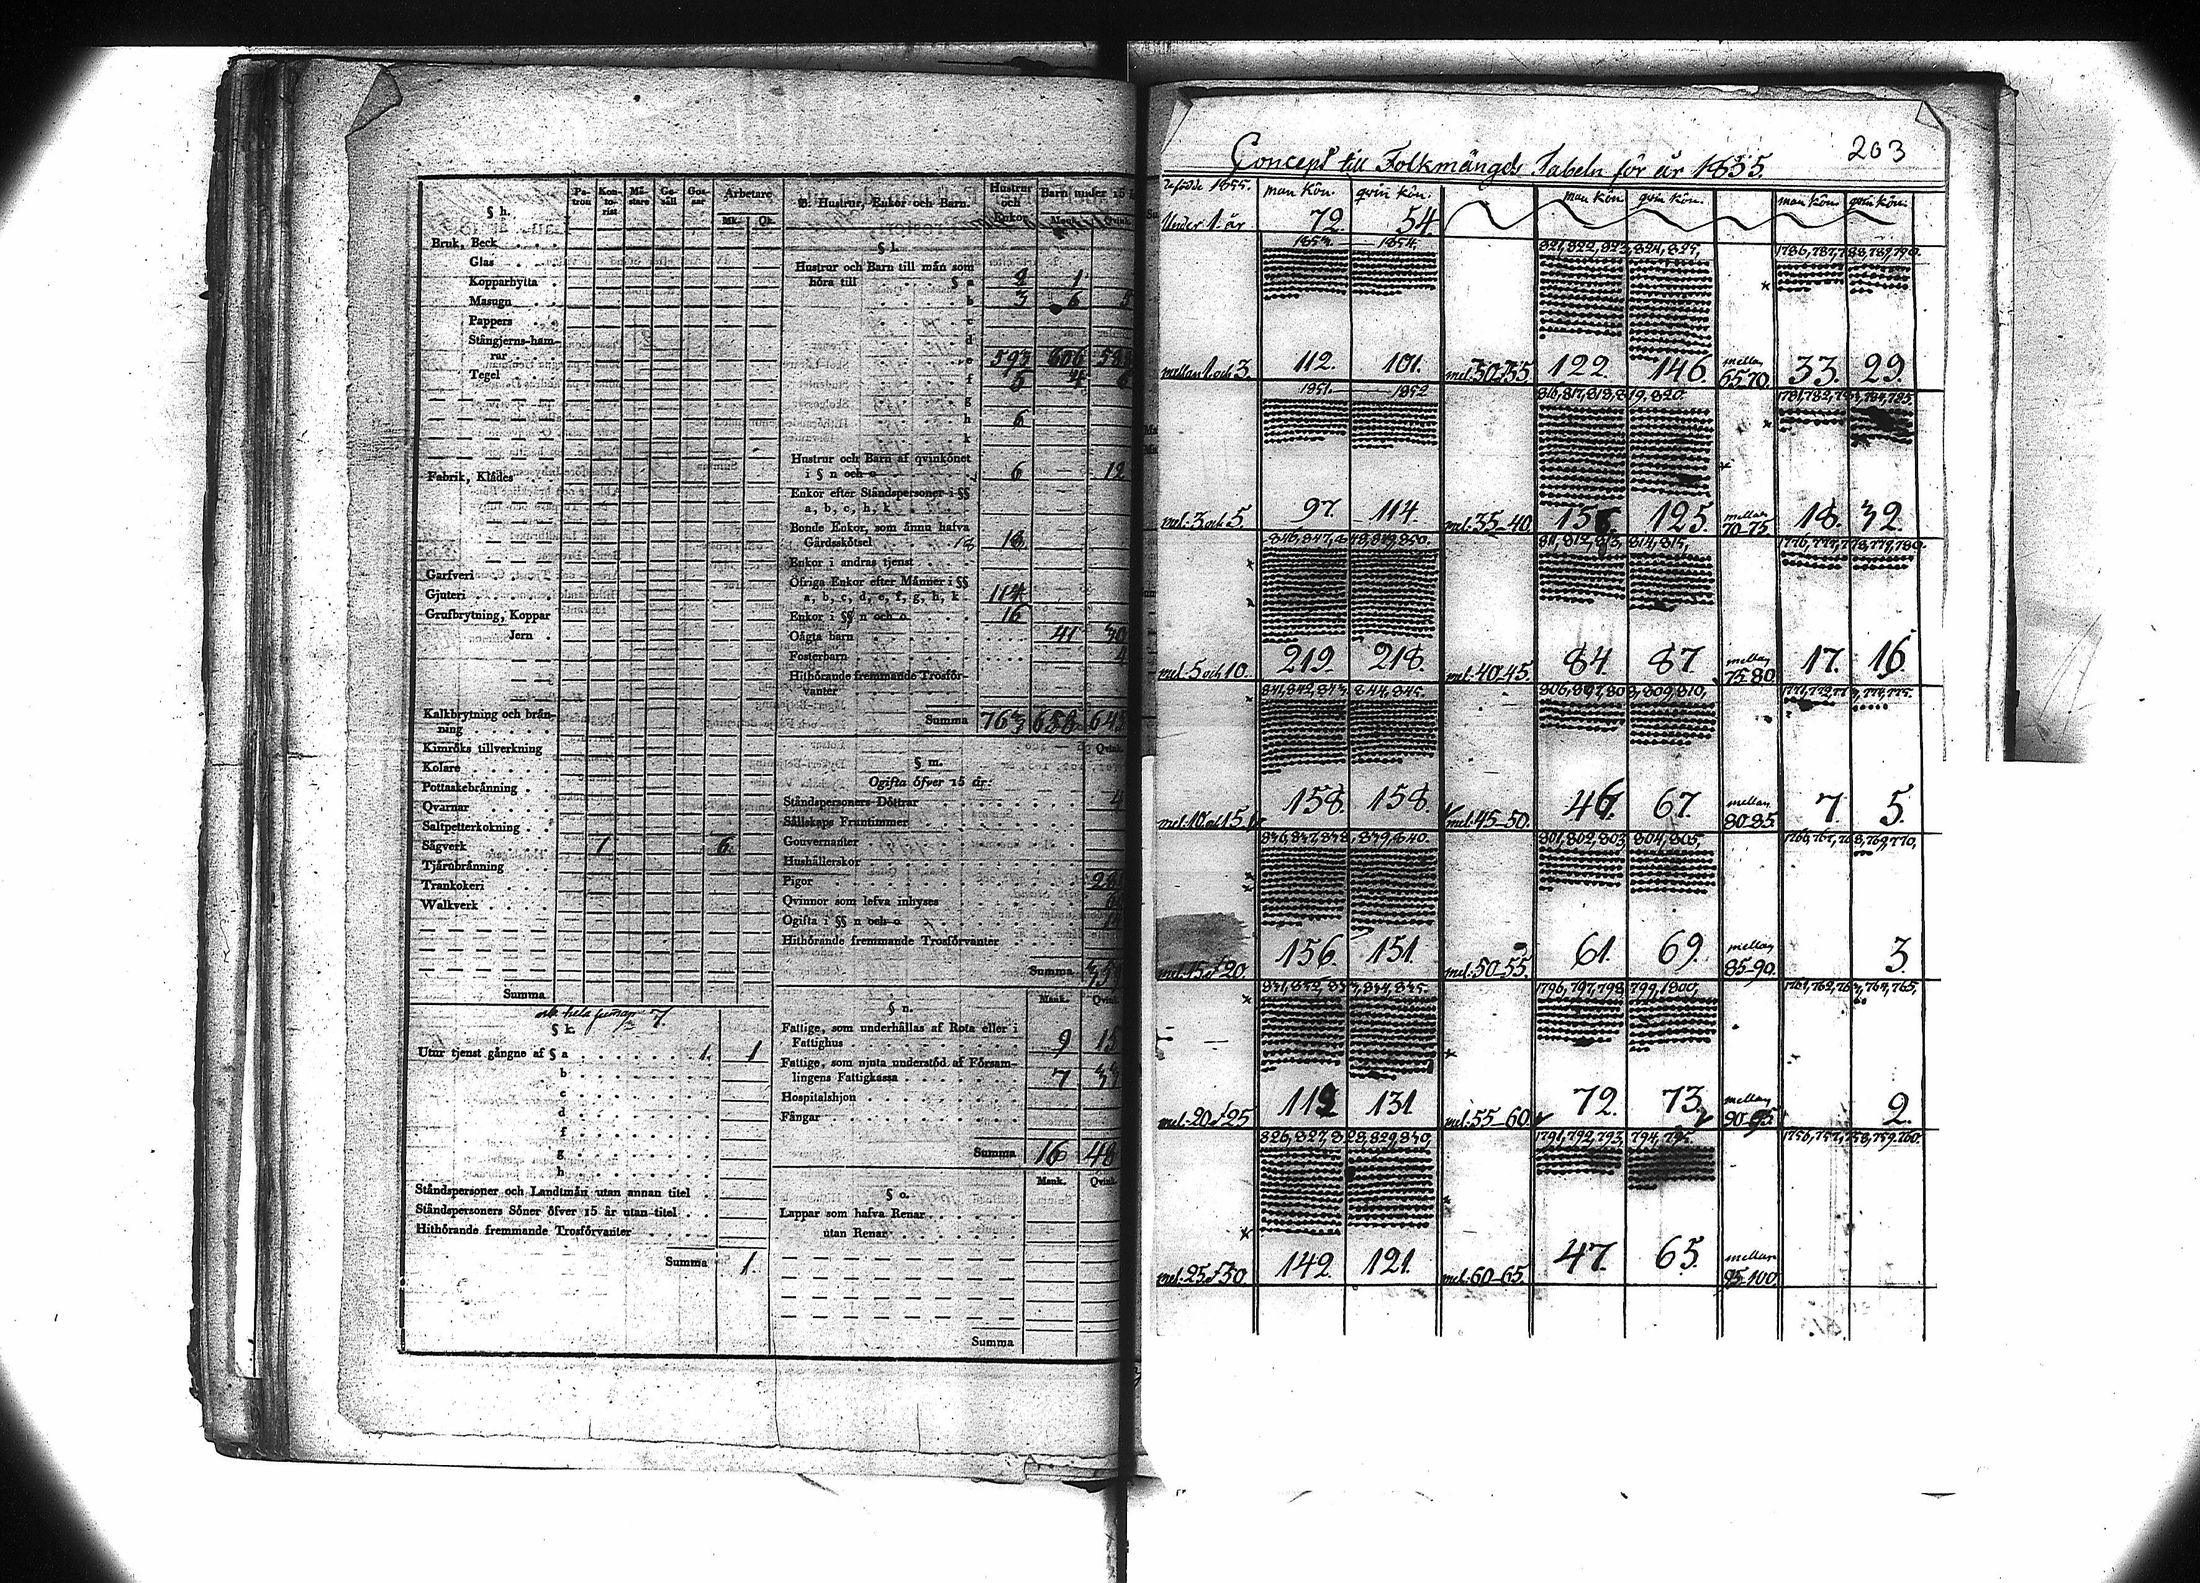 § h.
Pa-tron
Kon-to-rist
Mä-stare
Ge-säll
Gos-sar
Arbetare
Mk.
Qk.
Bruk, Beck
Glas
Kopparhytta
Masugn
Pappers
Stångjerns-ham-
rar
Tegel
Fabrik, Klädes
Garfveri
Gjuteri
Grufbrytning, Koppar
Jern
Kalkbrytning och brän-
ning
Kimröks tillverkning
Kolare
Pottaskebränning
Qvarnar
Saltpetterkokning
Sågverk 1 6.
Tjärubränning
Trankokeri
Walkverk
Summa
§ k. 7.
Utur tjenst gångne af § a 1. 1
b
c
d
f
g
h
Ståndspersoner och Landtmän utan annan titel
Ståndspersoners Söner öfver 15 år utan titel
Hithörande fremmande Trosförvanter
Summa 1.
B. Hustrur, Enkor och Barn.
Hustrur och Enkor
Barn under 15
Mank.
Qvink.
§ l.
Hustrur och Barn till män som
höra till § a 2 1
b 3 6 5
c
d
e 593 606
f 5 4 6
g
h 6
k
Hustrur och Barn af qvinkönet
i § n och o 6 12
Enkor efter Ståndspersoner i §§
a, b, c, h, k
Bonde Enkor, som ännu hafva
Gårdsskötsel 18 18
Enkor i andras tjenst
Öfriga Enkor efter Männer i §§
a, b, c, d, e, f, g, h, k 114
Enkor i §§ n och o 16
Oägta barn 41 30
Fosterbarn 4
Hithörande fremmande Trosför-
vanter
Summa 763 658 64
Qvink.
§ m.
Ogifta öfver 15 år:
Ståndspersoners Döttrar 4
Sällskaps Fruntimmer
Gouvernanter
Hushållerskor
Pigor
Qvinnor som lefva inhyses
Ogifta i §§ n och o
Hithörande fremmande Trosförvanter
Summa
Mank. Qvink.
§ n.
Fattige, som underhållas af Rota eller i
Fattighus 9 15
Fattige, som njuta understöd af Försam-
lingens Fattigkassa 7 33
Hospitalshjon
Fångar
Summa 16 48
Mank. Qvink.
§ o.
Lappar som hafva Renar
utan Renar
Summa
203
Concept till Folkmängds Tabeln för år 1855.
födde 1855. man kön. qvin kön. man kön qvin kön. man kön qvin kön.
Under 1 år 72. 54.
1853. 1854. 821, 822, 823, 824, 825, 1786, 787, 788, 789, 790.
mellan 1 och 3. 112. 101. mel: 30 & 35. 122. 146. mellan 65-70. 33. 29.
1851. 1852 816, 817, 818, 819, 820. 1781, 782, 783, 784, 785.
mel: 3 och 5. 97. 114. mel: 35-40 156. 125. mellan 70-75. 18. 32.
846, 847, 848, 849, 850. 811, 812, 813, 814, 815, 1776, 777, 778, 779, 780.
mel: 5 och 10. 219. 218. mel: 40-45. 84. 87. mellan 75-80 17. 16.
841, 842, 843, 844, 845. 806, 807, 808, 809, 810, 1771, 772, 773, 774, 775.
mel: 10 och 15. 158. 158. mel: 45-50. 46. 67. mellan 80-85. 7. 5.
836, 837, 838, 839, 840. 801, 802, 803, 804, 805, 1766, 767, 768, 769, 770,
mel: 15 & 20. 156. 151. mel: 50-55. 61. 69. mellan 85-90. 3.
831, 832, 833, 834, 835. 1796, 797, 798, 799, 1800, 1761, 762, 763, 764, 765,
mel: 20 & 25 112 131 mel: 55-60. 72. 73. mellan 90-95. 2.
826, 827, 828, 829, 830, 1791, 792, 793, 794, 795. 1756, 757, 758, 759, 760.
mel: 25 & 30. 142. 121. mel: 60-65. 47. 65. mellan 95-100